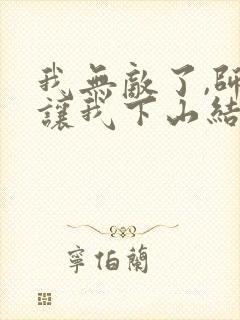 我無敵了,師
讓我下山結
寧伯蘭